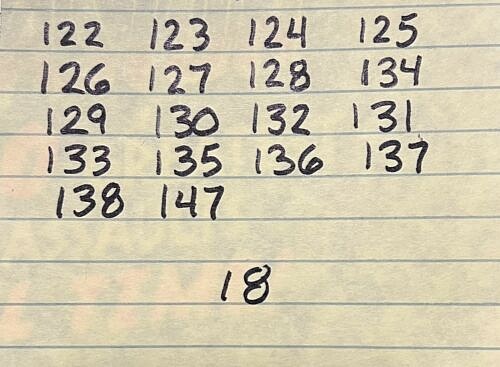 122 123 124 125
126 127 128 134
129 130 132 131
133 135 136 137
138 147
18